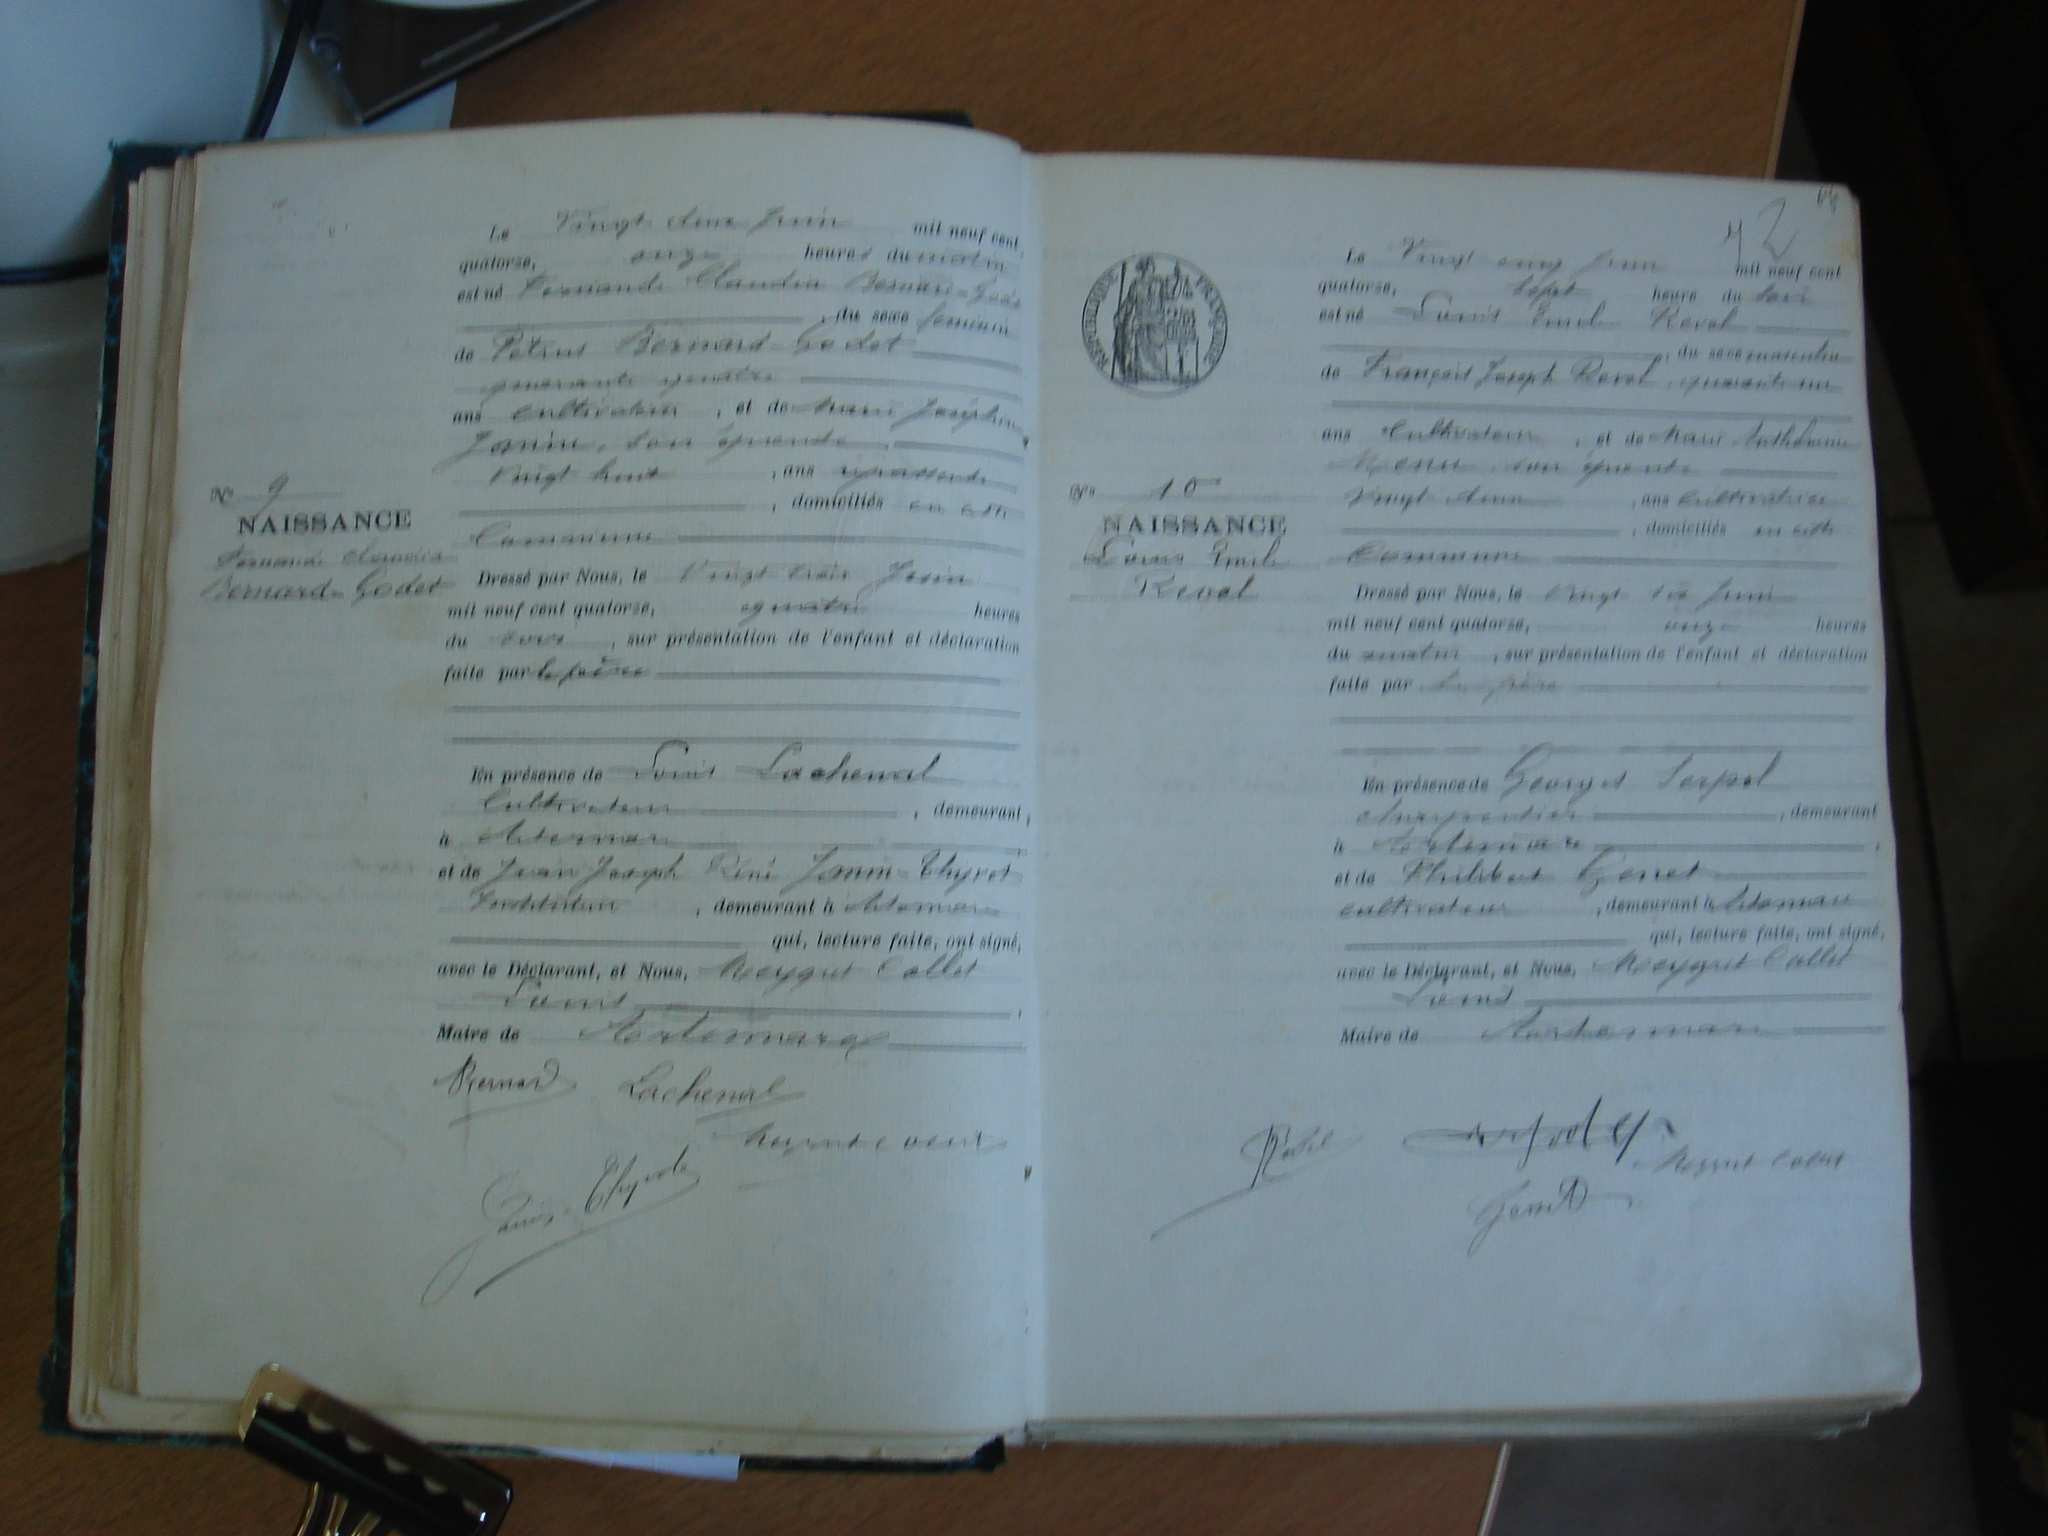 Le Vingt deux Juin mil neuf cent
quatorze, onze heures du matin
est né Fernande Claudia Bernard-Godet
, du sexe féminin
de Pétrus Bernard-Godet
quarante quatre
ans cultivateur, et de Marie Joséphine
Janin, son épouse
Vingt huit, ans
, domiciliés en cette
Commune
N° 9
NAISSANCE
Fernande Claudia
Bernard-Godet
Dressé par Nous, le Vingt trois Juin
mil neuf cent quatorze, quatre heures
du soir, sur présentation de l'enfant et déclaration
faite par le père
En présence de Louis Lachenal
Cultivateur, demeurant
à Artemare
et de Jean Joseph René Janin-Thyvot
Instituteur, demeurant à Artemare
qui, lecture faite, ont signé,
avec le Déclarant, et Nous, Meygret Collet
Louis
Maire de Artemare
Bernard Lachenal
Meygret Collet
Janin-Thyvot
42
RÉPUBLIQUE FRANÇAISE
Le Vingt cinq Juin mil neuf cent
quatorze, sept heure du soir
est né Louis Emile Revol
, du sexe masculin
de François Joseph Revol, quarante un
ans Cultivateur, et de Marie Anthelmine
son épouse
Vingt deux, ans cultivatrice
, domiciliés en cette
Commune
N° 10
NAISSANCE
Louis Emile
Revol
Dressé par Nous, le Vingt six Juin
mil neuf cent quatorze, onze heures
du matin, sur présentation de l'enfant et déclaration
faite par le père
En présence de Georges Serpol
charpentier, demeurant
à Artemare
et de Philibert Genet
cultivateur, demeurant à Artemare
qui, lecture faite, ont signé,
avec le Déclarant, et Nous, Meygret Collet
Louis
Maire de Artemare
Revol
Meygret Collet
Genet